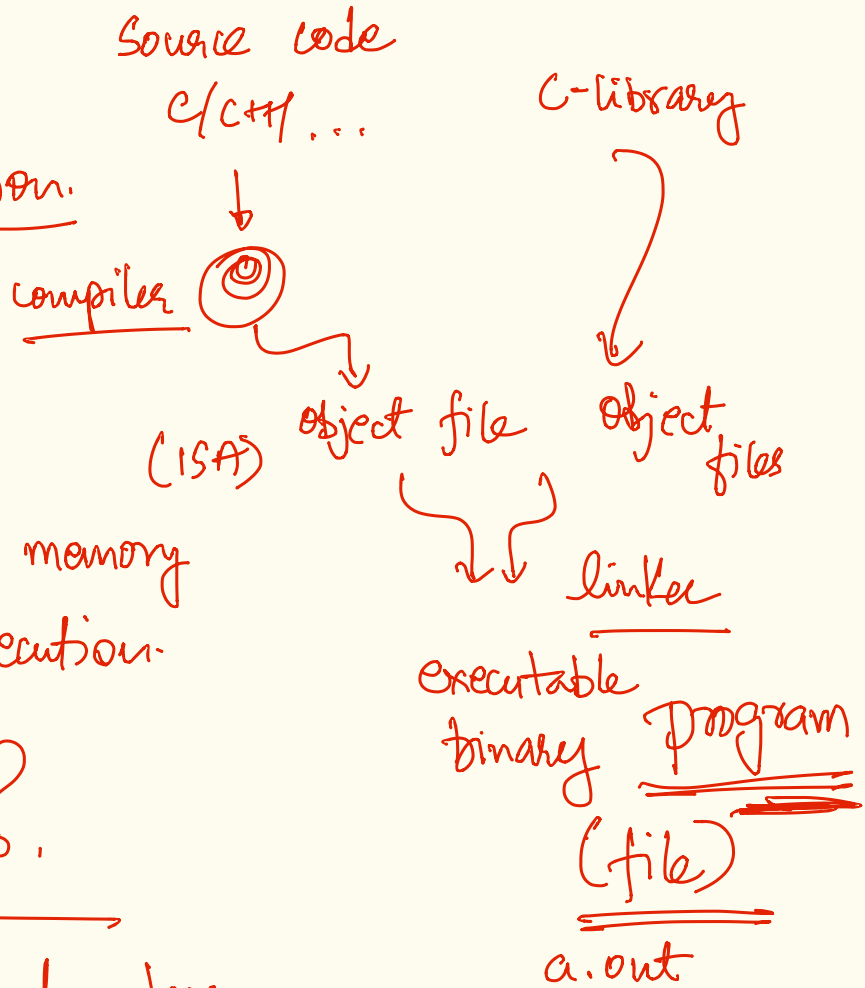 Source code
C/C++/...
C-library
compiler
object file
object
files
(ISA)
memory
linker
executable
binary
program
(file)
a.out